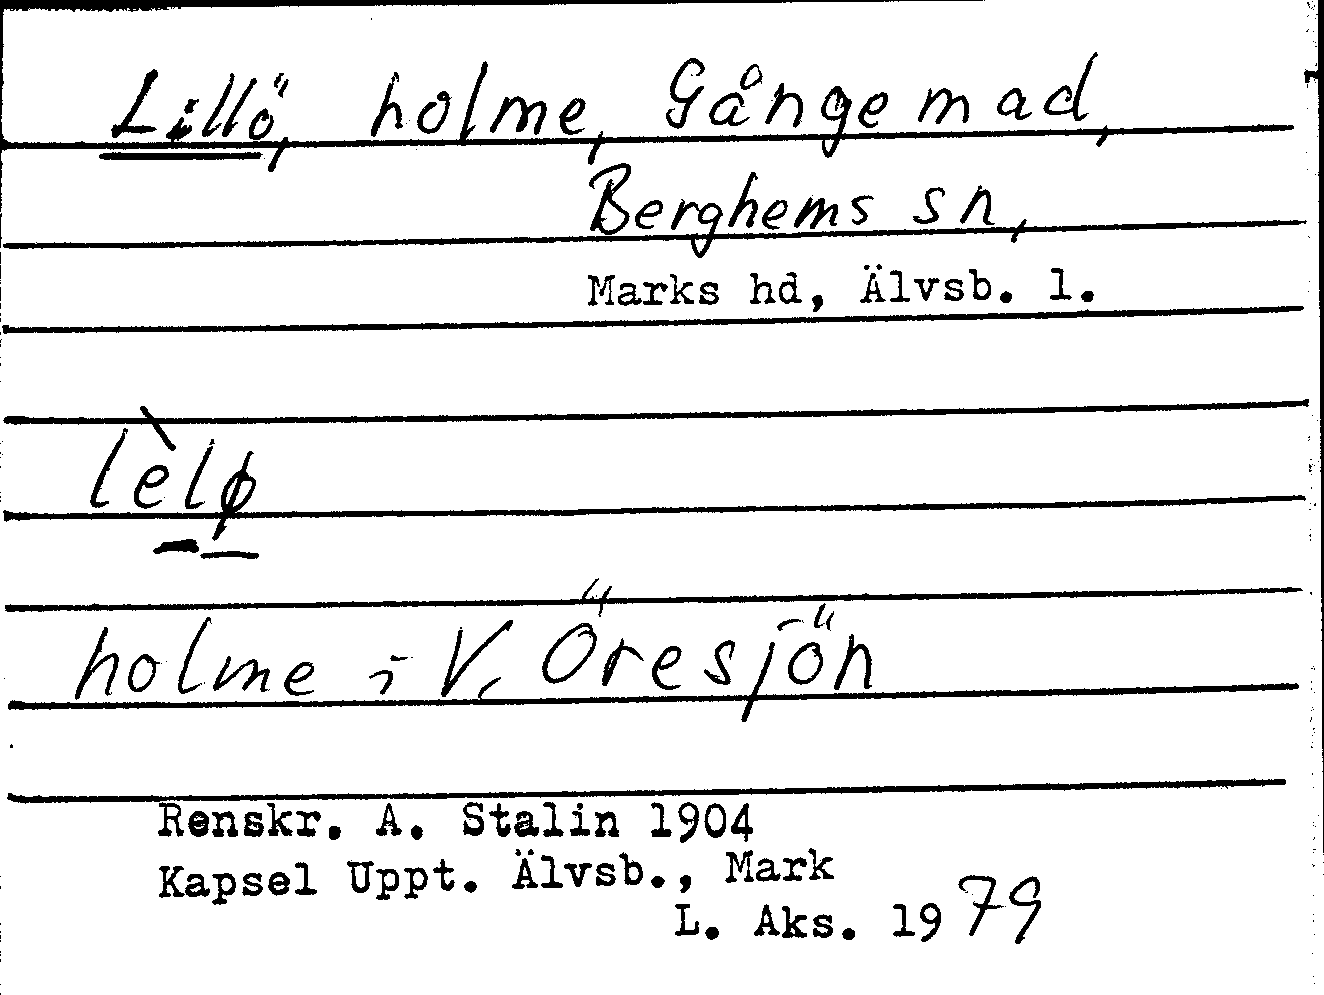 Lillö, holme, Gångemad,
Berghems sn,
Marks hd, Älvsb. l.
lèlø
holme i V. Öresjön
Renskr. A. Stalin 1904
Kapsel Uppt. Älvsb., Mark
L. Aks. 1979